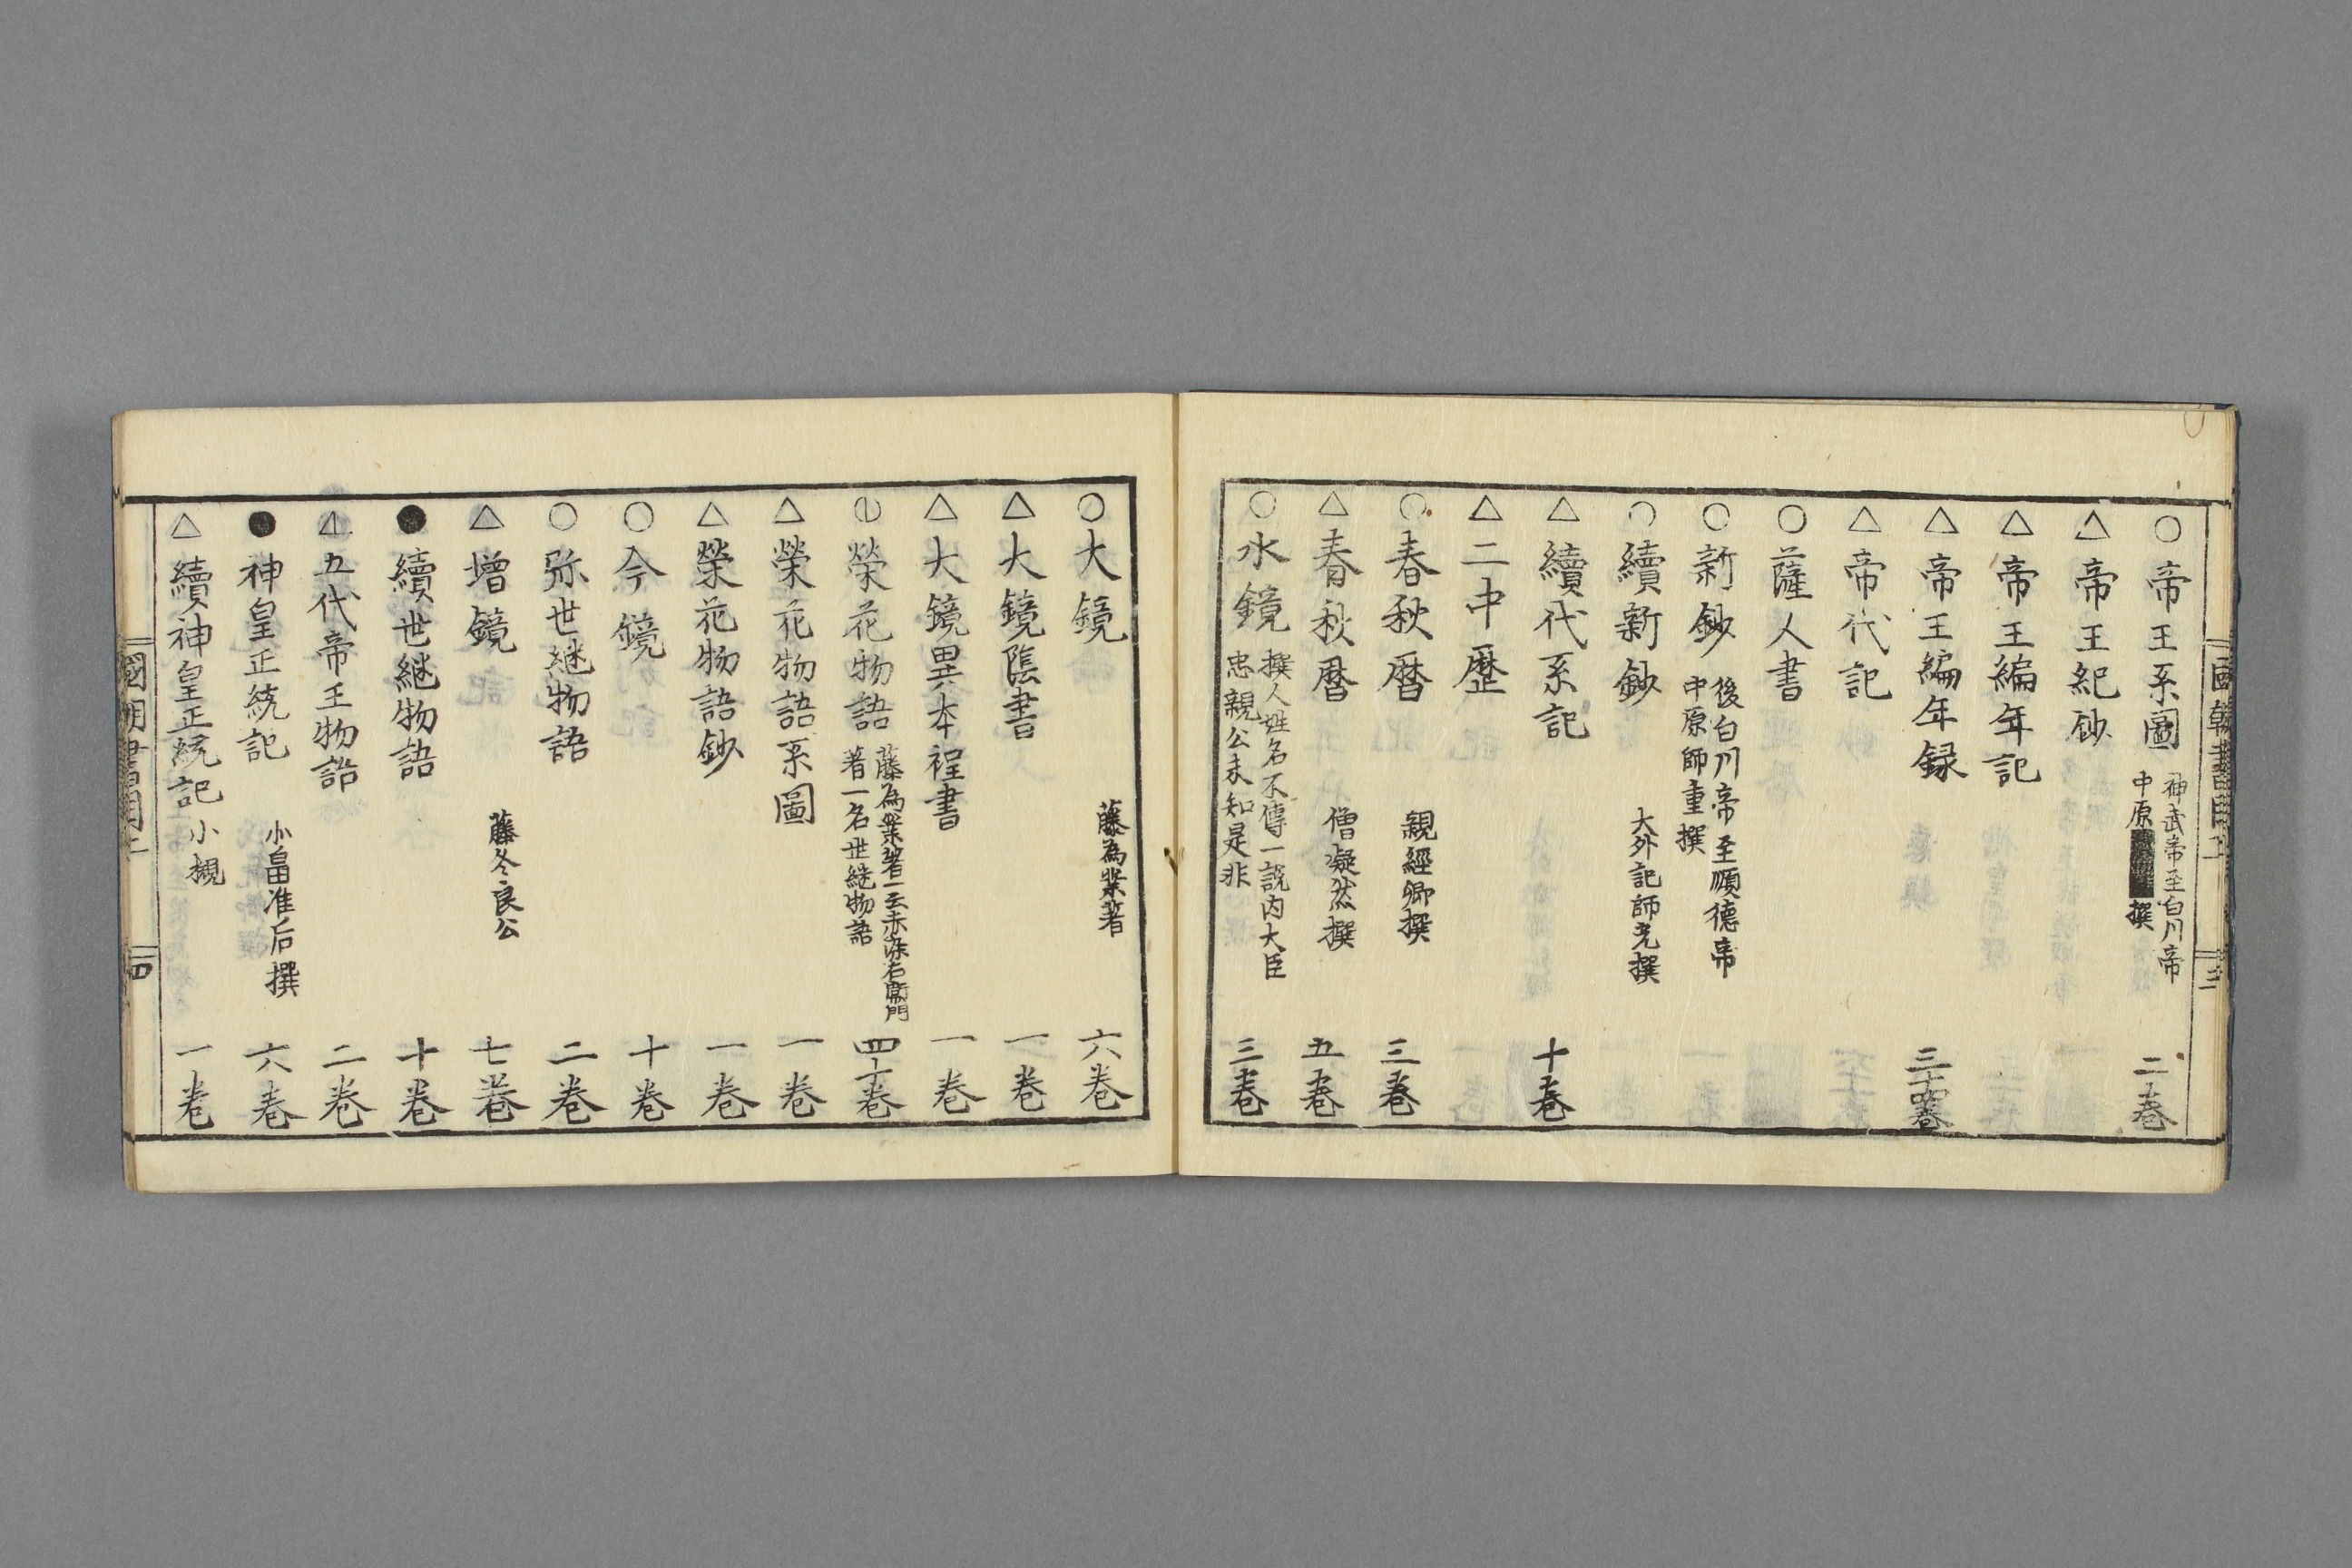 ○帝王系圖 神武帝至白川帝 中原 撰 二卷
△帝王紀砂
△帝王編年記
△帝王編年録
△帝代記
○薩人書
○新鈔 後白川帝至順德帝 中原師重撰
○續新鈔 大外記師光撰
△續代系記 十卷
△二中歷
○春秋暦 親經卿撰 三卷
△春秋暦 僧凝然撰 五卷
○水鏡 撰人姓名不傳一説内大臣 忠親公未知是非 三卷
三
○大鏡 藤為業著 六卷
△大鏡陰書 一卷
△大鏡異本裎書 一卷
榮花物語 藤為業著一云赤染右衛門 著一名世継物語 四十卷
△榮花物語系圖 一卷
△榮花物語鈔 一卷
○今鏡 十卷
○弥世継物語 二卷
△増鏡 藤冬良公 七卷
●續世継物語 十卷
五代帝王物語 二卷
●神皇正統記 小畠准后撰 六卷
△續神皇正統記 小槻 一卷
四